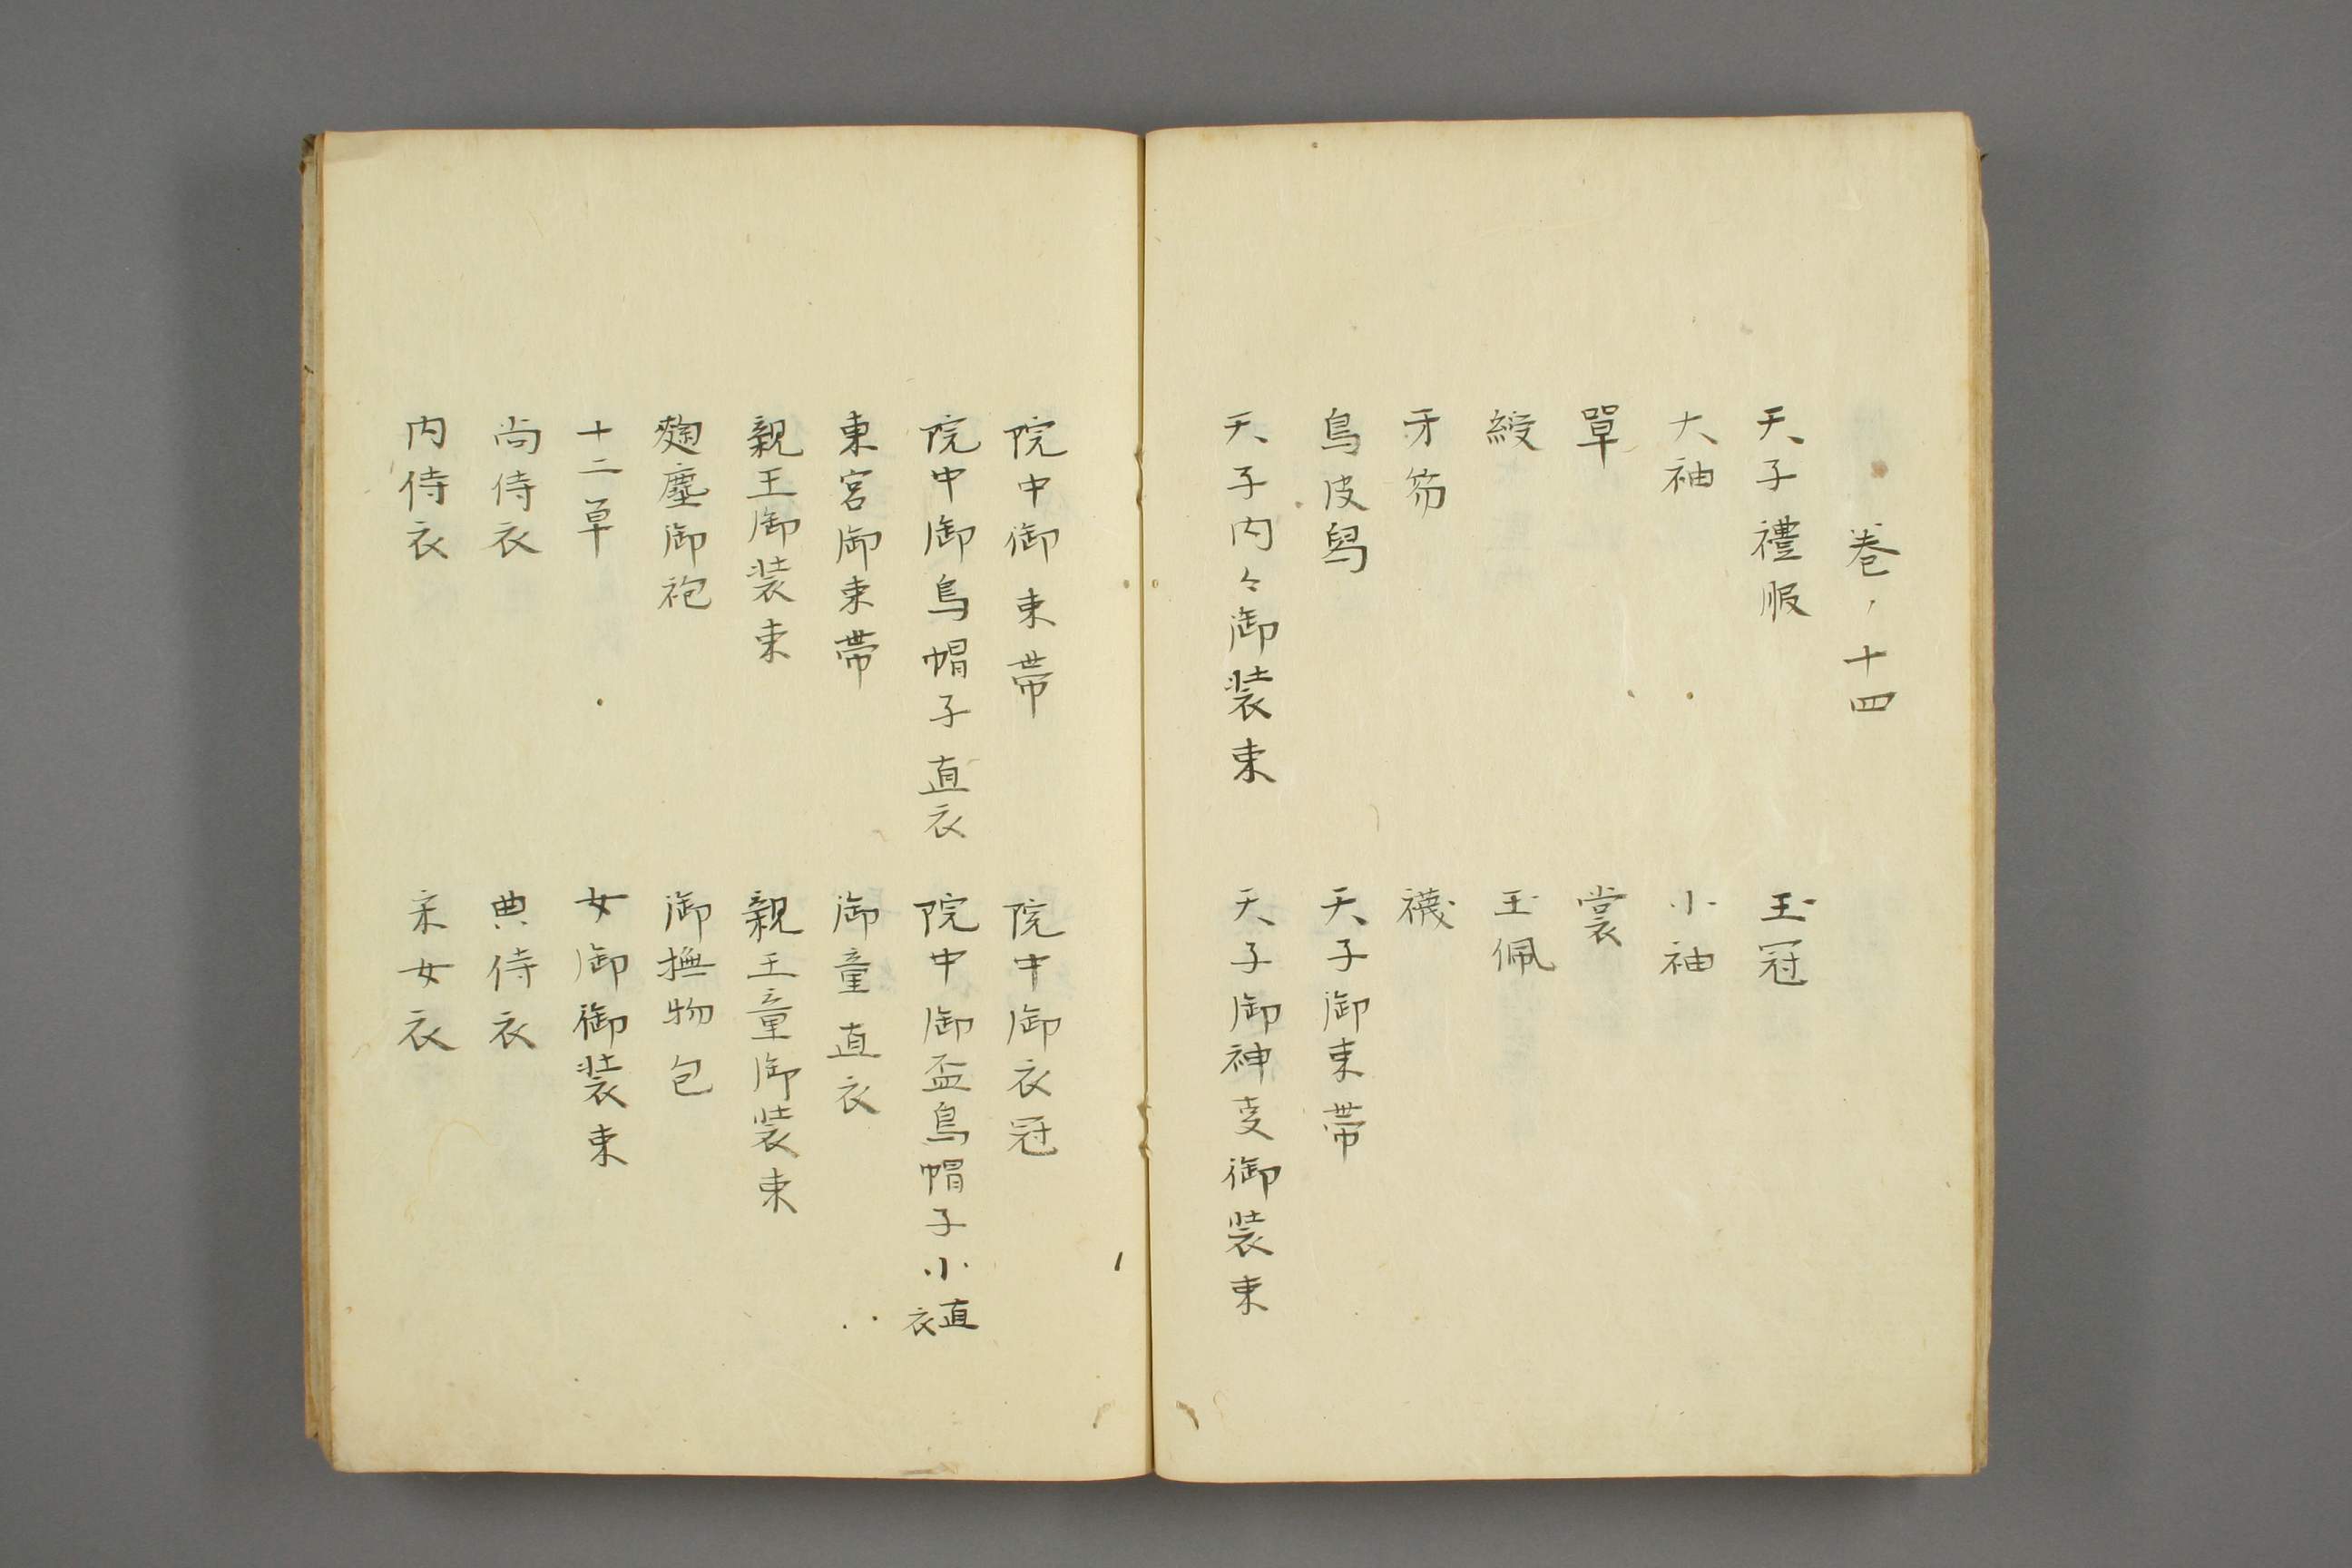 巻ノ十四
天子禮服　玉冠
大袖　小袖
單　裳
綬　玉佩
牙笏　襪
烏皮舄　天子御束帯
天子内々御装束　天子御神叓御装束
院中御束帯　院中御衣冠
院中御烏帽子直衣　院中御盃烏帽子小直衣
東宮御束帯　御童直衣
親王御装束　親王童御装束
麹塵御袍　御撫物包
十二单　女御御装束
尚侍衣　典侍衣
内侍衣　采女衣